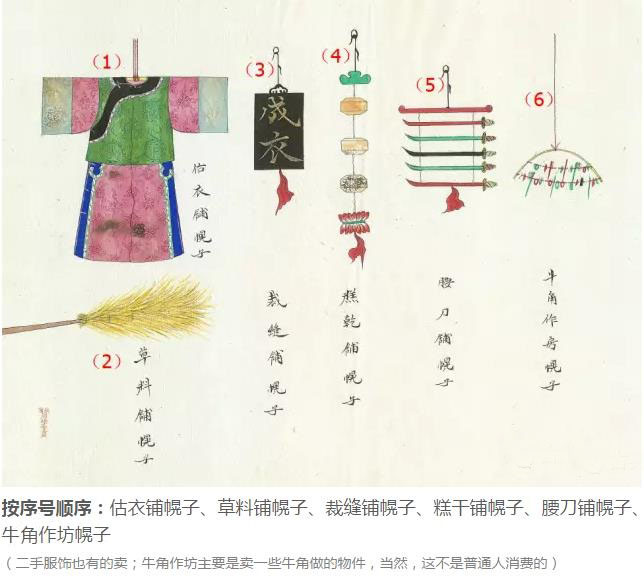 （1）
（2）
（3）
（4）
（5）
（6）
估衣铺幌子
草料舖幌子
成衣
裁缝舖幌子
糕乾舖幌子
腰刀舖幌子
牛角作房幌子
按序号顺序：估衣铺幌子、草料铺幌子、裁缝铺幌子、糕干铺幌子、腰刀铺幌子、
牛角作坊幌子
（二手服饰也有的卖；牛角作坊主要是卖一些牛角做的物件，当然，这不是普通人消费的）